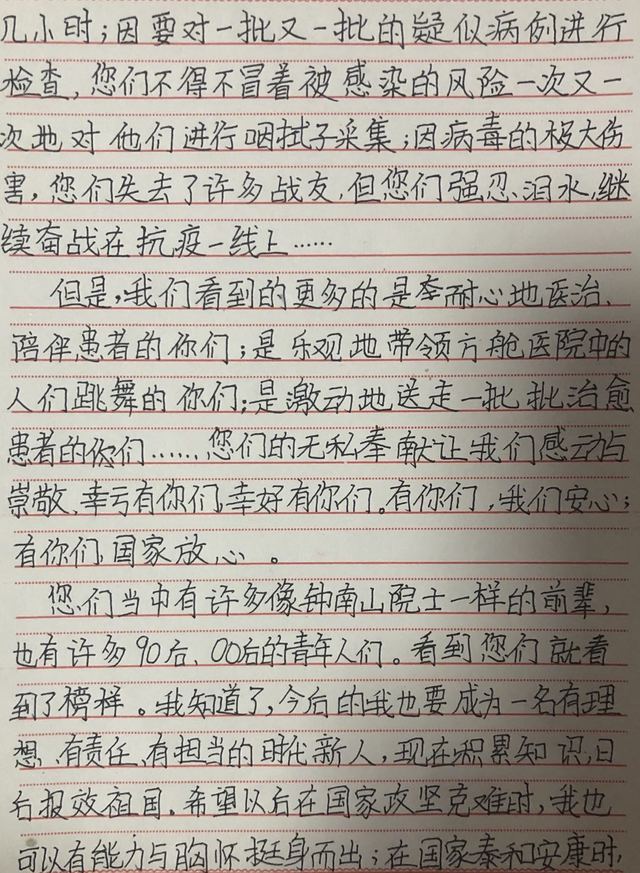 几小时；因要对一批又一批的疑似病例进行
检查，您们不得不冒着被感染的风险一次又一
次地对他们进行咽拭子采集；因病毒的极大伤
害，您们失去了许多战友，但您们强忍泪水，继
续奋战在抗疫一线上……
但是，我们看到的更多的是耐心地医治、
陪伴患者的你们；是乐观地带领方舱医院中的
人们跳舞的你们；是激动地送走一批批治愈
患者的你们……您们的无私奉献让我们感动与
崇敬、幸亏有你们，幸好有你们。有你们，我们安心；
有你们，国家放心。
您们当中有许多像钟南山院士一样的前辈，
也有许多90后、00后的青年人们。看到您们就看
到了榜样。我知道了，今后的我也要成为一名有理
想、有责任、有担当的时代新人，现在积累知识，日
后报效祖国。希望以后在国家攻坚克难时，我也
可以有能力与胸怀挺身而出；在国家泰和安康时，